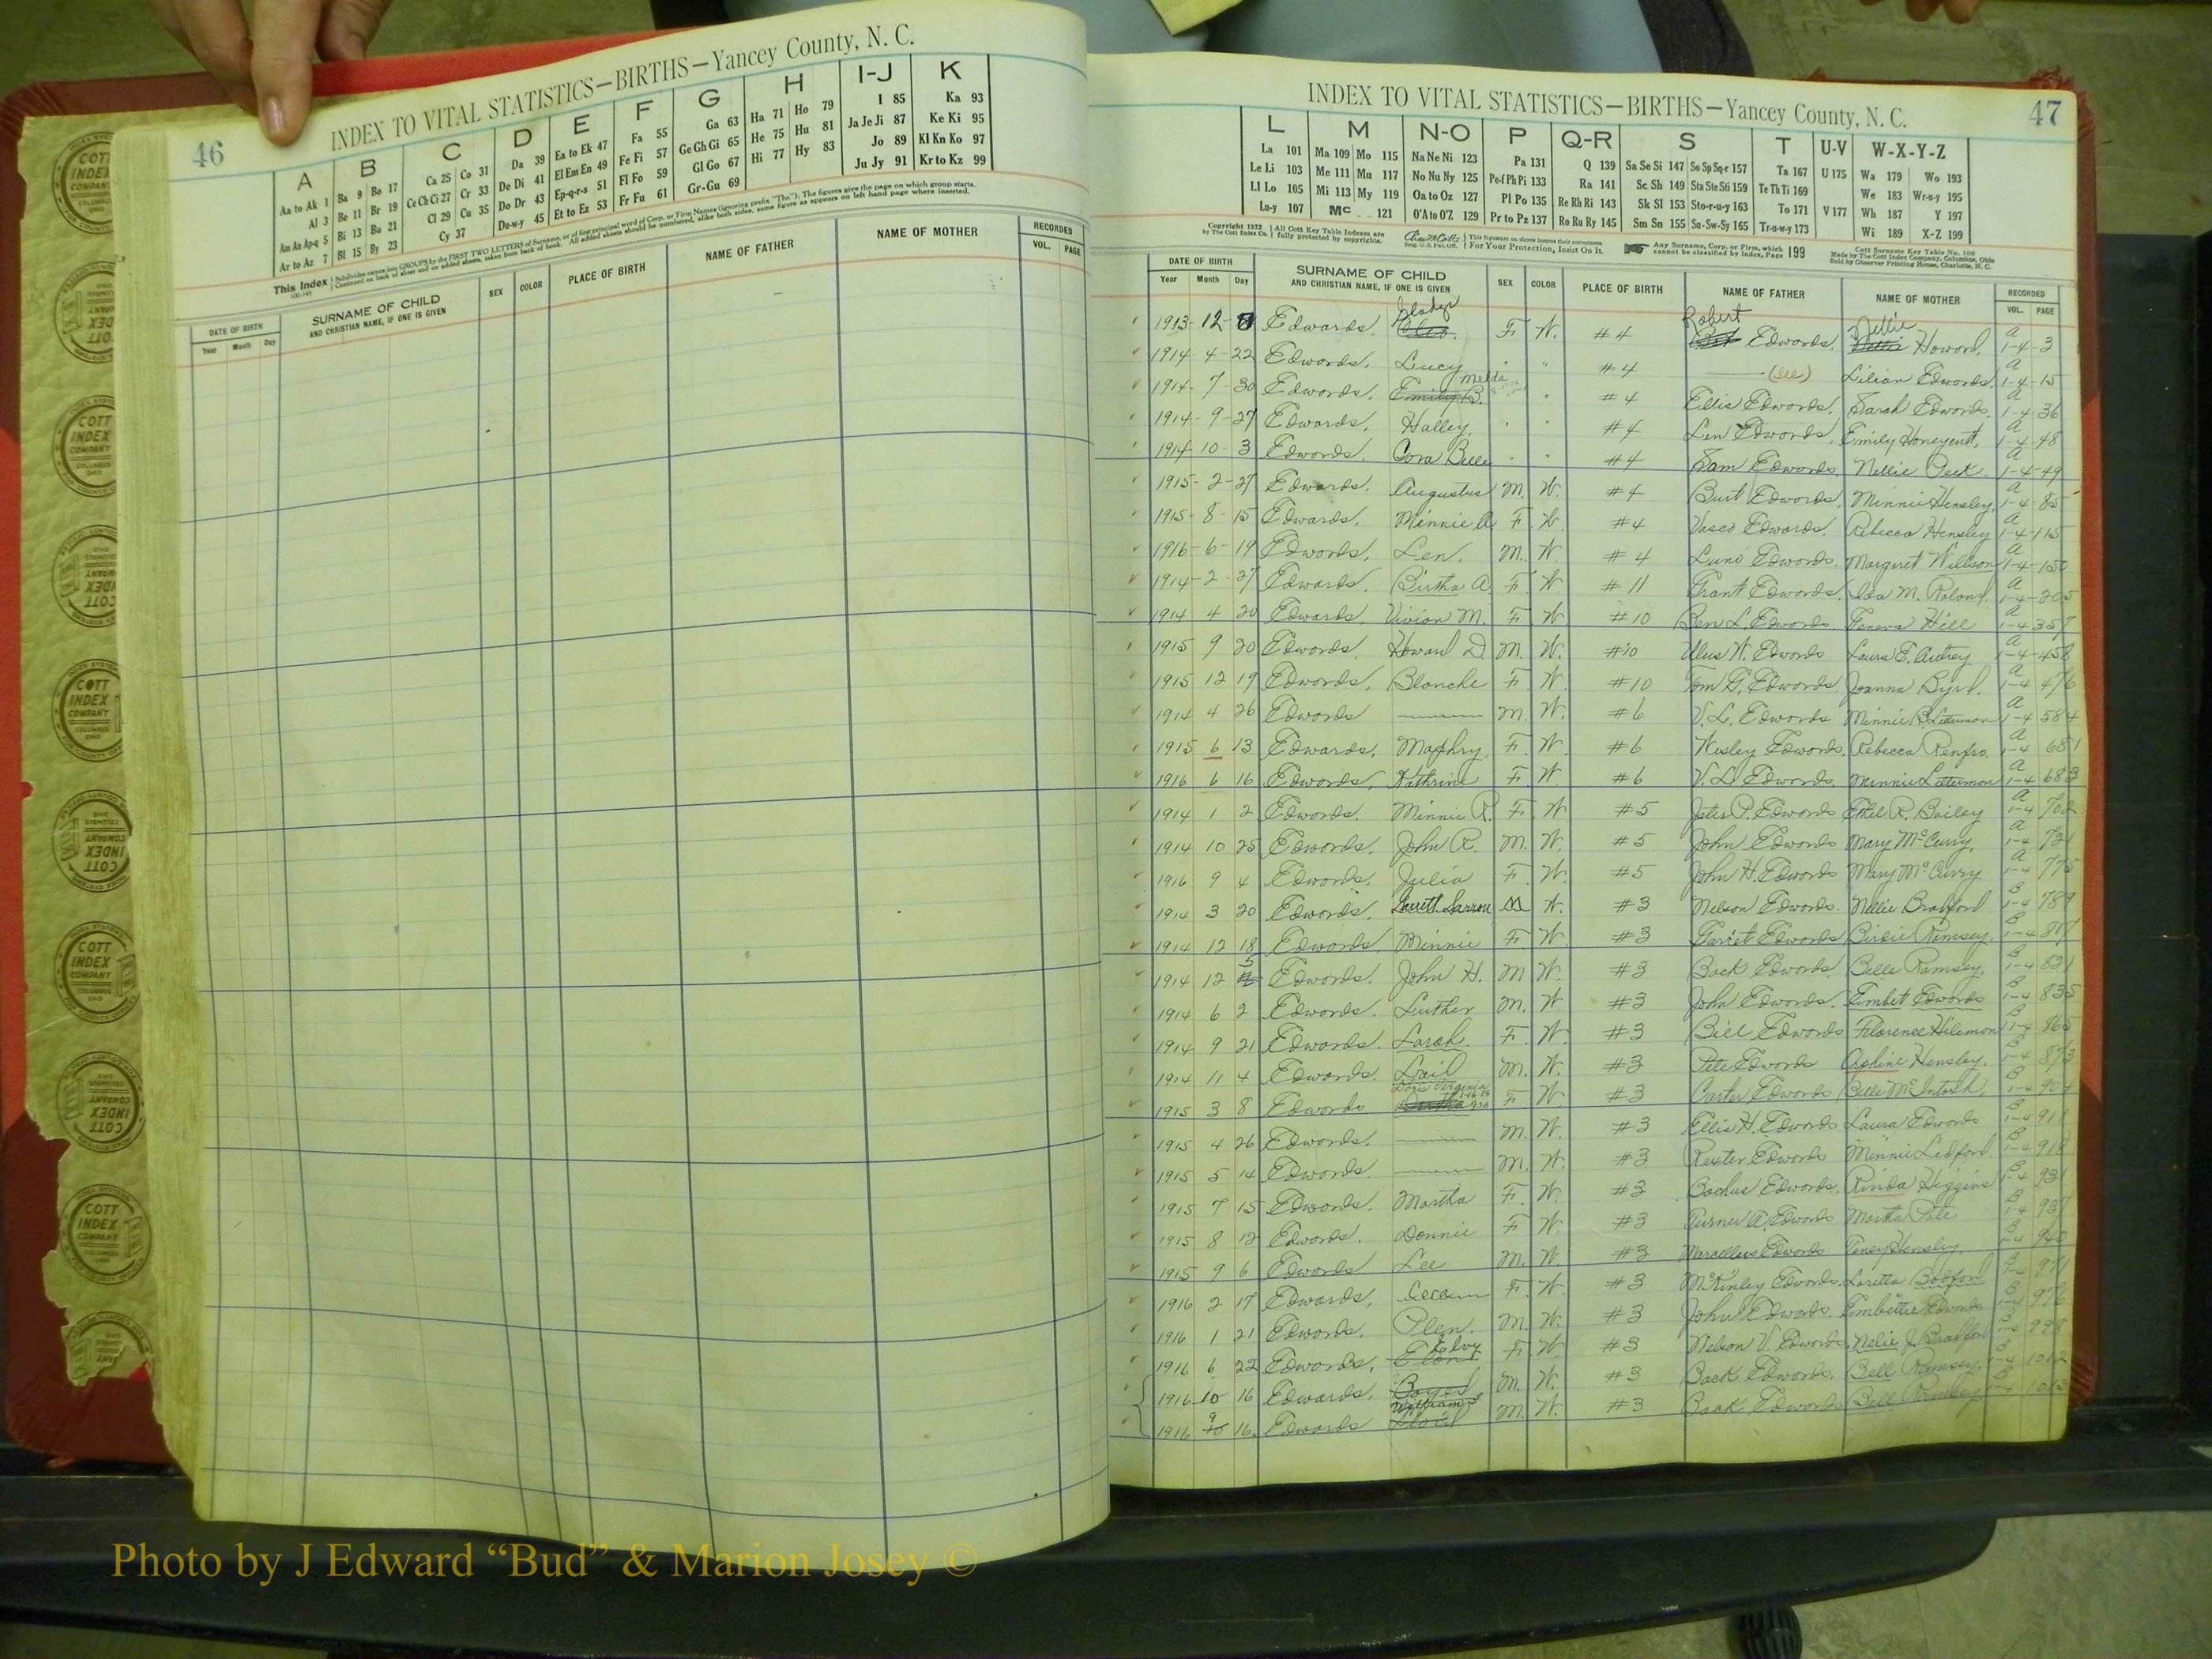 46
INDEX TO VITAL STATISTICS—BIRTHS—Yancey County, N. C.
A B C D E F G H I-J K
Aa to Ak 1 Ba 9 Bo 17 Ca 25 Co 31 Da 39 Ea to Ek 47 Fa 55 Ga 63 Ha 71 Ho 79 I 85 Ka 93
Al 3 Be 11 Br 19 Ce Ch Ci 27 Cr 33 De Di 41 El Em En 49 Fe Fi 57 Ge Gh Gi 65 He 75 Hu 81 Ja Je Ji 87 Ke Ki 95
Am An Ap-q 5 Bi 13 Bu 21 Cl 29 Cu 35 Do Dr 43 Ep-q-r-s 51 Fl Fo 59 Gl Go 67 Hi 77 Hy 83 Jo 89 Kl Kn Ko 97
Ar to Az 7 Bl 15 By 23 Cy 37 Du-w-y 45 Et to Ez 53 Fr Fu 61 Gr-Gu 69 Ju Jy 91 Kr to Kz 99
This Index
Subdivides names into GROUPS by the FIRST TWO LETTERS of Surname, or of first principal word of Corp. or Firm Names (ignoring prefix "The"). The figures give the page on which group starts.
DATE OF BIRTH SURNAME OF CHILD SEX COLOR PLACE OF BIRTH NAME OF FATHER NAME OF MOTHER RECORDED
Year Month Day AND CHRISTIAN NAME, IF ONE IS GIVEN VOL. PAGE
COTT INDEX COMPANY
47
INDEX TO VITAL STATISTICS—BIRTHS—Yancey County, N. C.
L M N-O P Q-R S T U-V W-X-Y-Z
La 101 Ma 109 Mo 115 Na Ne Ni 123 Pa 131 Q 139 Sa Se Si 147 So Sp Sq-r 157 Ta 167 U 175 Wa 179 Wo 193
Le Li 103 Me 111 Mu 117 No Nu Ny 125 Pe-f Ph Pi 133 Ra 141 Sc Sh 149 Sta Ste Sti 159 Te Th Ti 169 We 183 Wr-u-y 195
Ll Lo 105 Mi 113 My 119 Oa to Oz 127 Pl Po 135 Re Rh Ri 143 Sk Sl 153 Sto-r-u-y 163 To 171 V 177 Wh 187 Y 197
Lu-y 107 Mc 121 O'A to O'Z 129 Pr to Pz 137 Ro Ru Ry 145 Sm Sn 155 Su-Sw-Sy 165 Tr-u-w-y 173 Wi 189 X-Z 199
Copyright 1932 by The Cott Index Co.
All Cott Key Table Indexes are fully protected by copyrights.
For Your Protection, Insist On It.
Any Surname, Corp. or Firm, which cannot be classified by Index, Page 199
Cott Surname Key Table No. 100
Made by The Cott Index Company, Columbus, Ohio
Sold by Observer Printing House, Charlotte, N. C.
DATE OF BIRTH SURNAME OF CHILD SEX COLOR PLACE OF BIRTH NAME OF FATHER NAME OF MOTHER RECORDED
Year Month Day AND CHRISTIAN NAME, IF ONE IS GIVEN VOL. PAGE
1913-12-8 Edwards, Gladys F. W. #4 Robert Edwards, Nellie Howard, A 1-4-3
1914-4-22 Edwards, Lucy " " #4 Lilian Edwards, A 1-4-15
1914-7-30 Edwards, Emily B. Melda " " #4 Ellis Edwards, Sarah Edwards, A 1-4-36
1914-9-27 Edwards, Halley, " " #4 Len Edwards, Emily Honeycutt, A 1-4-48
1914-10-3 Edwards, Cora Belle " " #4 Sam Edwards, Nellie Peek A 1-4-49
1915-2-27 Edwards, Augustus M. W. #4 Burt Edwards, Minnie Hensley, A 1-4-85
1915-8-15 Edwards, Minnie A. F. W. #4 Vasco Edwards, Rebecca Hensley A 1-4-115
1916-6-19 Edwards, Len. M. W #4 Edwards, Margaret Willson A 1-4-150
1914-2-27 Edwards, Birtha A. F. W. #11 Grant Edwards, Ida M. A 1-4-205
1914 4 20 Edwards, Vivian M. F. W #10 Ben L. Edwards Geneva Hill A 1-4 357
1915 9 20 Edwards, Howard D. M. W. #10 W. Edwards Laura E. Autrey A 1-4-458
1915 12 19 Edwards, Blanche F. W. #10 Tom G. Edwards Joanna Byrd. A 1-4 476
1914 4 26 Edwards M. W. #6 V. L. Edwards Minnie B. Letterman A 1-4 584
1915 6 13 Edwards, F. W. #6 Wesley Edwards, Rebecca Renfro, A 1-4 681
1916 6 16 Edwards, Kathrine F. W #6 V. L. Edwards. Minnie Letterman A 1-4 683
1914 1 2 Edwards, Minnie R. F. W #5 P. Edwards Ethel R. Bailey A 1-4 702
1914 10 25 Edwards, John R. M. W. #5 John Edwards Mary McCurry, A 1-4 721
1916 9 4 Edwards, Julia F. W. #5 John H. Edwards Mary McCurry A 1-4 775
1914 3 20 Edwards, M W. #3 Nelson Edwards. Nellie Bradford B 1-4 789
1914 12 18 Edwards, Minnie F. W. #3 Garret Edwards Birdie Ramsey, B 1-4 817
1914 12 5 Edwards, John H. M W. #3 Back Edwards, Belle Ramsey, B 1-4 821
1914 6 2 Edwards. Luther M. W #3 John Edwards. Embet Edwards B 1-4 835
1914 9 21 Edwards. Sarah. F. W. #3 Bill Edwards Florence Hileman B 1-4 865
1914 11 4 Edwards. Gail M. W. #3 Pete Edwards Orphine Hensley, B 1-4 873
1915 3 8 Edwards Doris Virginia F W #3 Carter Edwards Belle McIntosh, B 1-4 904
1915 4 26 Edwards. M. W. #3 Ellis H. Edwards Laura Edwards B 1-4 911
1915 5 14 Edwards. M. W. #3 Rexter Edwards Minnie Ledford B 1-4 918
1915 7 15 Edwards. Martha F. W. #3 Bachus Edwards, Rinda Higgins B 1-4 931
1915 8 12 Edwards. Donnie F W. #3 Turner A. Edwards Martha Pate B 1-4 937
1915 9 6 Edwards Lee M. W. #3 Marcellus Edwards Hensley, B 1-4 940
1916 2 17 Edwards, F. W. #3 McKinley Edwards, Loretta B 1-4 971
1916 1 21 Edwards. Plen. M. W. #3 John Edwards. Edwards B 1-4 976
1916 6 22 Edwards, Elvy F. W #3 Nelson V. Edwards, Nelie J. Bradford B 1-4 998
1916 10 16 Edwards, M. W. #3 Back Edwards, Bell Ramsey, B 1-4 1012
1916 9 16. Edwards William M. W. #3 Back Edwards Bell Ramsey B 1-4 1013
Photo by J Edward “Bud” & Marion Josey ©